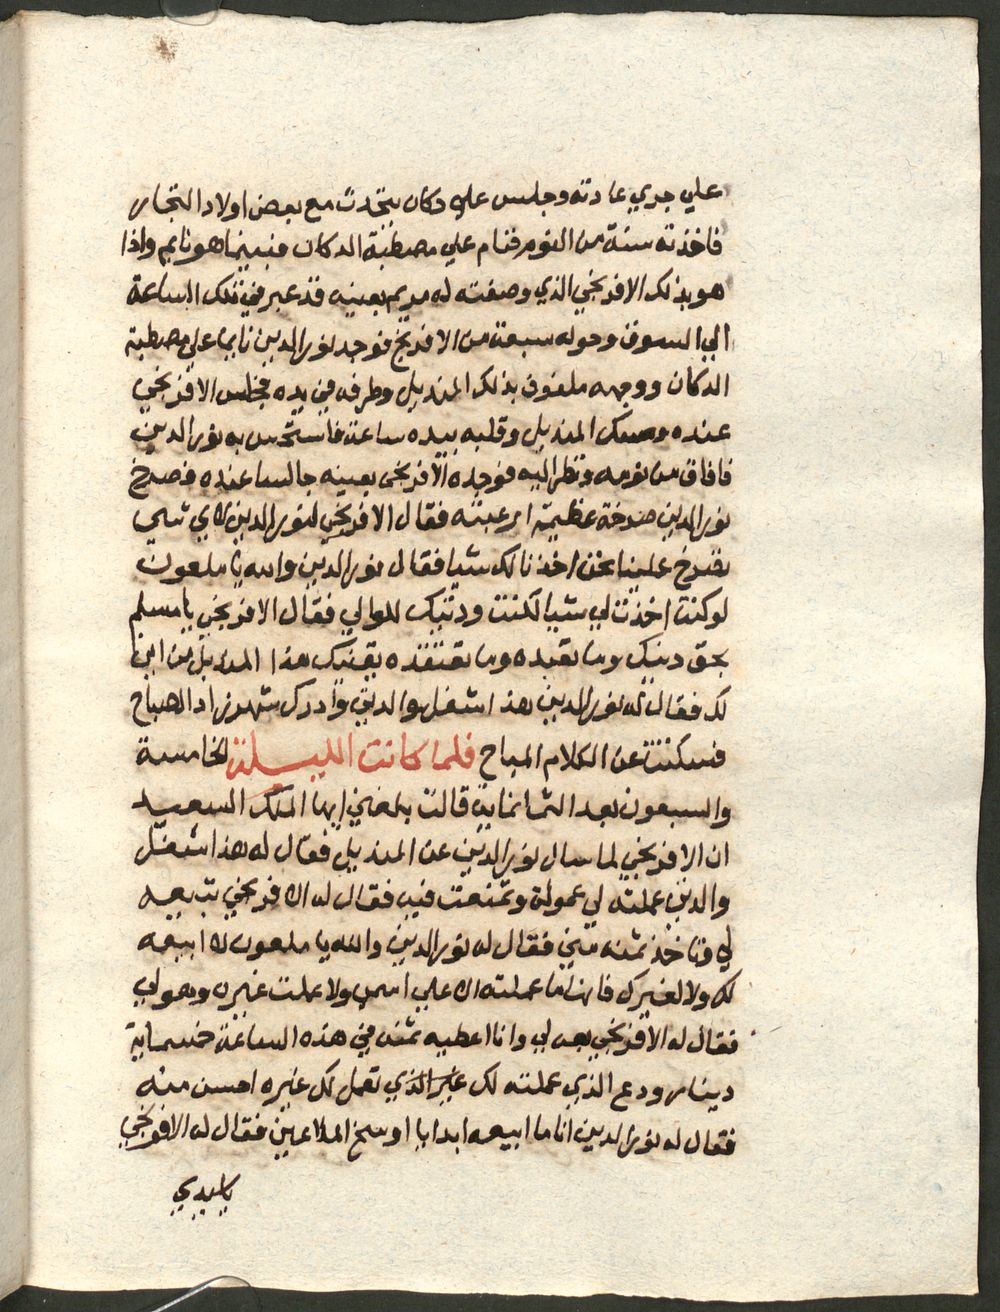 علي جري عادته وجلس علي دكان يتحدث مع بعض اولاد التجار
فاخذته سنة من النوم فنام علي مصطبة الدكان فبينما هو نايم واذا
هو بذلك الافرنجي الذي وصفته له مريم بعينه قد عبر في تلك الساعة
الي السوق وحوله سبعة من الافرنج فوجد نور الدين نايما علي مصطبة
الدكان ووجهه ملفوف بذلك المنديل وطرفه في يده فجلس الافرنجي
عنده ومسك المنديل وقلبه بيده ساعة فاستحس به نور الدين
فافاق من نومه ونظر اليه فوجده الافرنجي بعينه جالسا عنده فصرخ
نور الدين صرخة عظيمة ارعبته فقال الافرنجي لنور الدين لاي شي
تصرخ علينا نحن اخذنا لك شيا فقال نور الدين والله يا ملعون
لو كنت اخذت لي شيا لكنت وديتك للوالي فقال الافرنجي يا مسلم
بحق دينك وما تعبده وما تعتقده بقينك هذا المنديل من اين
لك فقال له نور الدين هذا شغل والدتي وادرك شهرزاد الصباح
فسكتت عن الكلام المباح فلما كانت الليلة الخامسة
والسبعون بعد الثمانماية قالت بلغني ايها الملك السعيد
ان الافرنجي لما سال نور الدين عن المنديل فقال له هذا شغل
والدتي عملته لي عمولة وتمنعت فيه فقال له الافرنجي تبيعه
لي وتاخذ ثمنه مني فقال له نور الدين والله يا ملعون لا ابيعه
لك ولا لغيرك فانها ما عملته الا علي اسمي ولا عملت غيره وهو لي
فقال له الافرنجي بعه لي وانا اعطيه ثمنه في هذه الساعة خمسماية
دينار ودع الذي عملته لك غير الذي تعمل لك غيره احسن منه
فقال له نور الدين انا ما ابيعه ابدا يا اوسخ الملاعين فقال له الافرنجي
يا سيدي